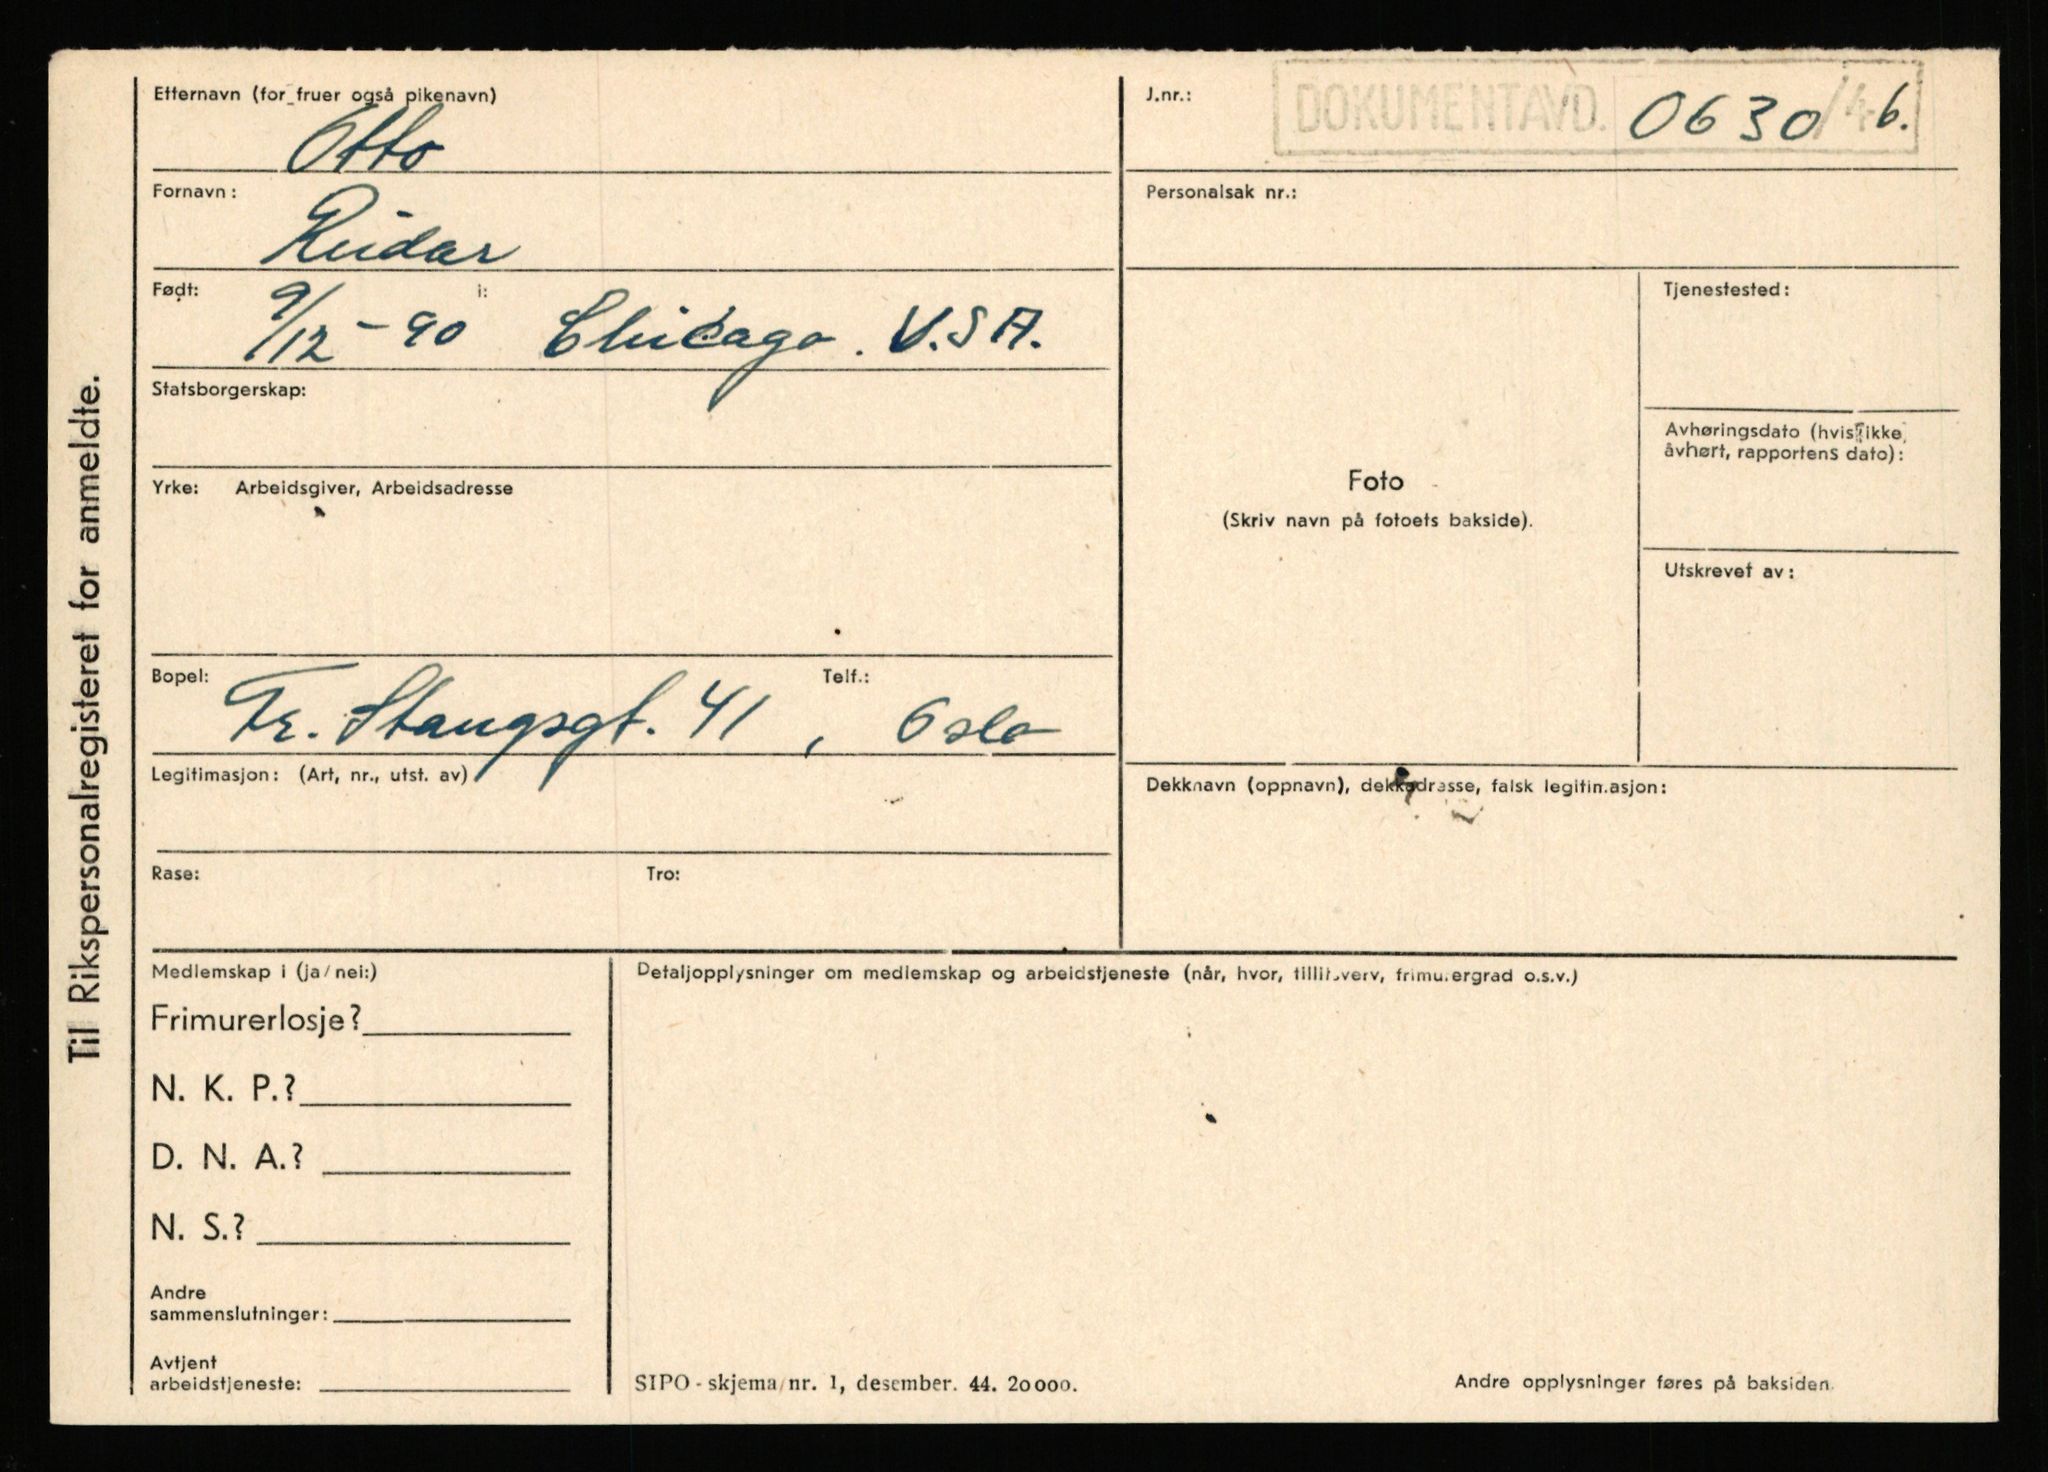 Til Rikspersonalregisteret for anmeldte.
Etternavn (for fruer også pikenavn)
Otto
Fornavn:
Reidar
Født: i:
9/12-90 Chicago. U.S.A.
Statsborgerskap:
Yrke: Arbeidsgiver, Arbeidsadresse
Bopel: Telf.:
Fr. Stangsgt. 41, Oslo
Legitimasjon: (Art, nr., utst. av)
Rase: Tro:
J.nr.:
DOKUMENTAVD. 0630/46.
Personalsak nr.:
Foto
(Skriv navn på fotoets bakside).
Tjenestested:
Avhøringsdato (hvis ikke
avhørt, rapportens dato):
Utskrevet av:
Dekknavn (oppnavn), dekkadrasse, falsk legitimasjon:
Medlemskap i (ja/nei:)
Frimurerlosje?
N. K. P.?
D. N. A.?
N. S.?
Andre
sammenslutninger:
Avtjent
arbeidstjeneste:
Detaljopplysninger om medlemskap og arbeidstjeneste (når, hvor, tillitsverv, frimurergrad o.s.v.)
SIPO - skjema nr. 1, desember. 44. 20000.
Andre opplysninger føres på baksiden.